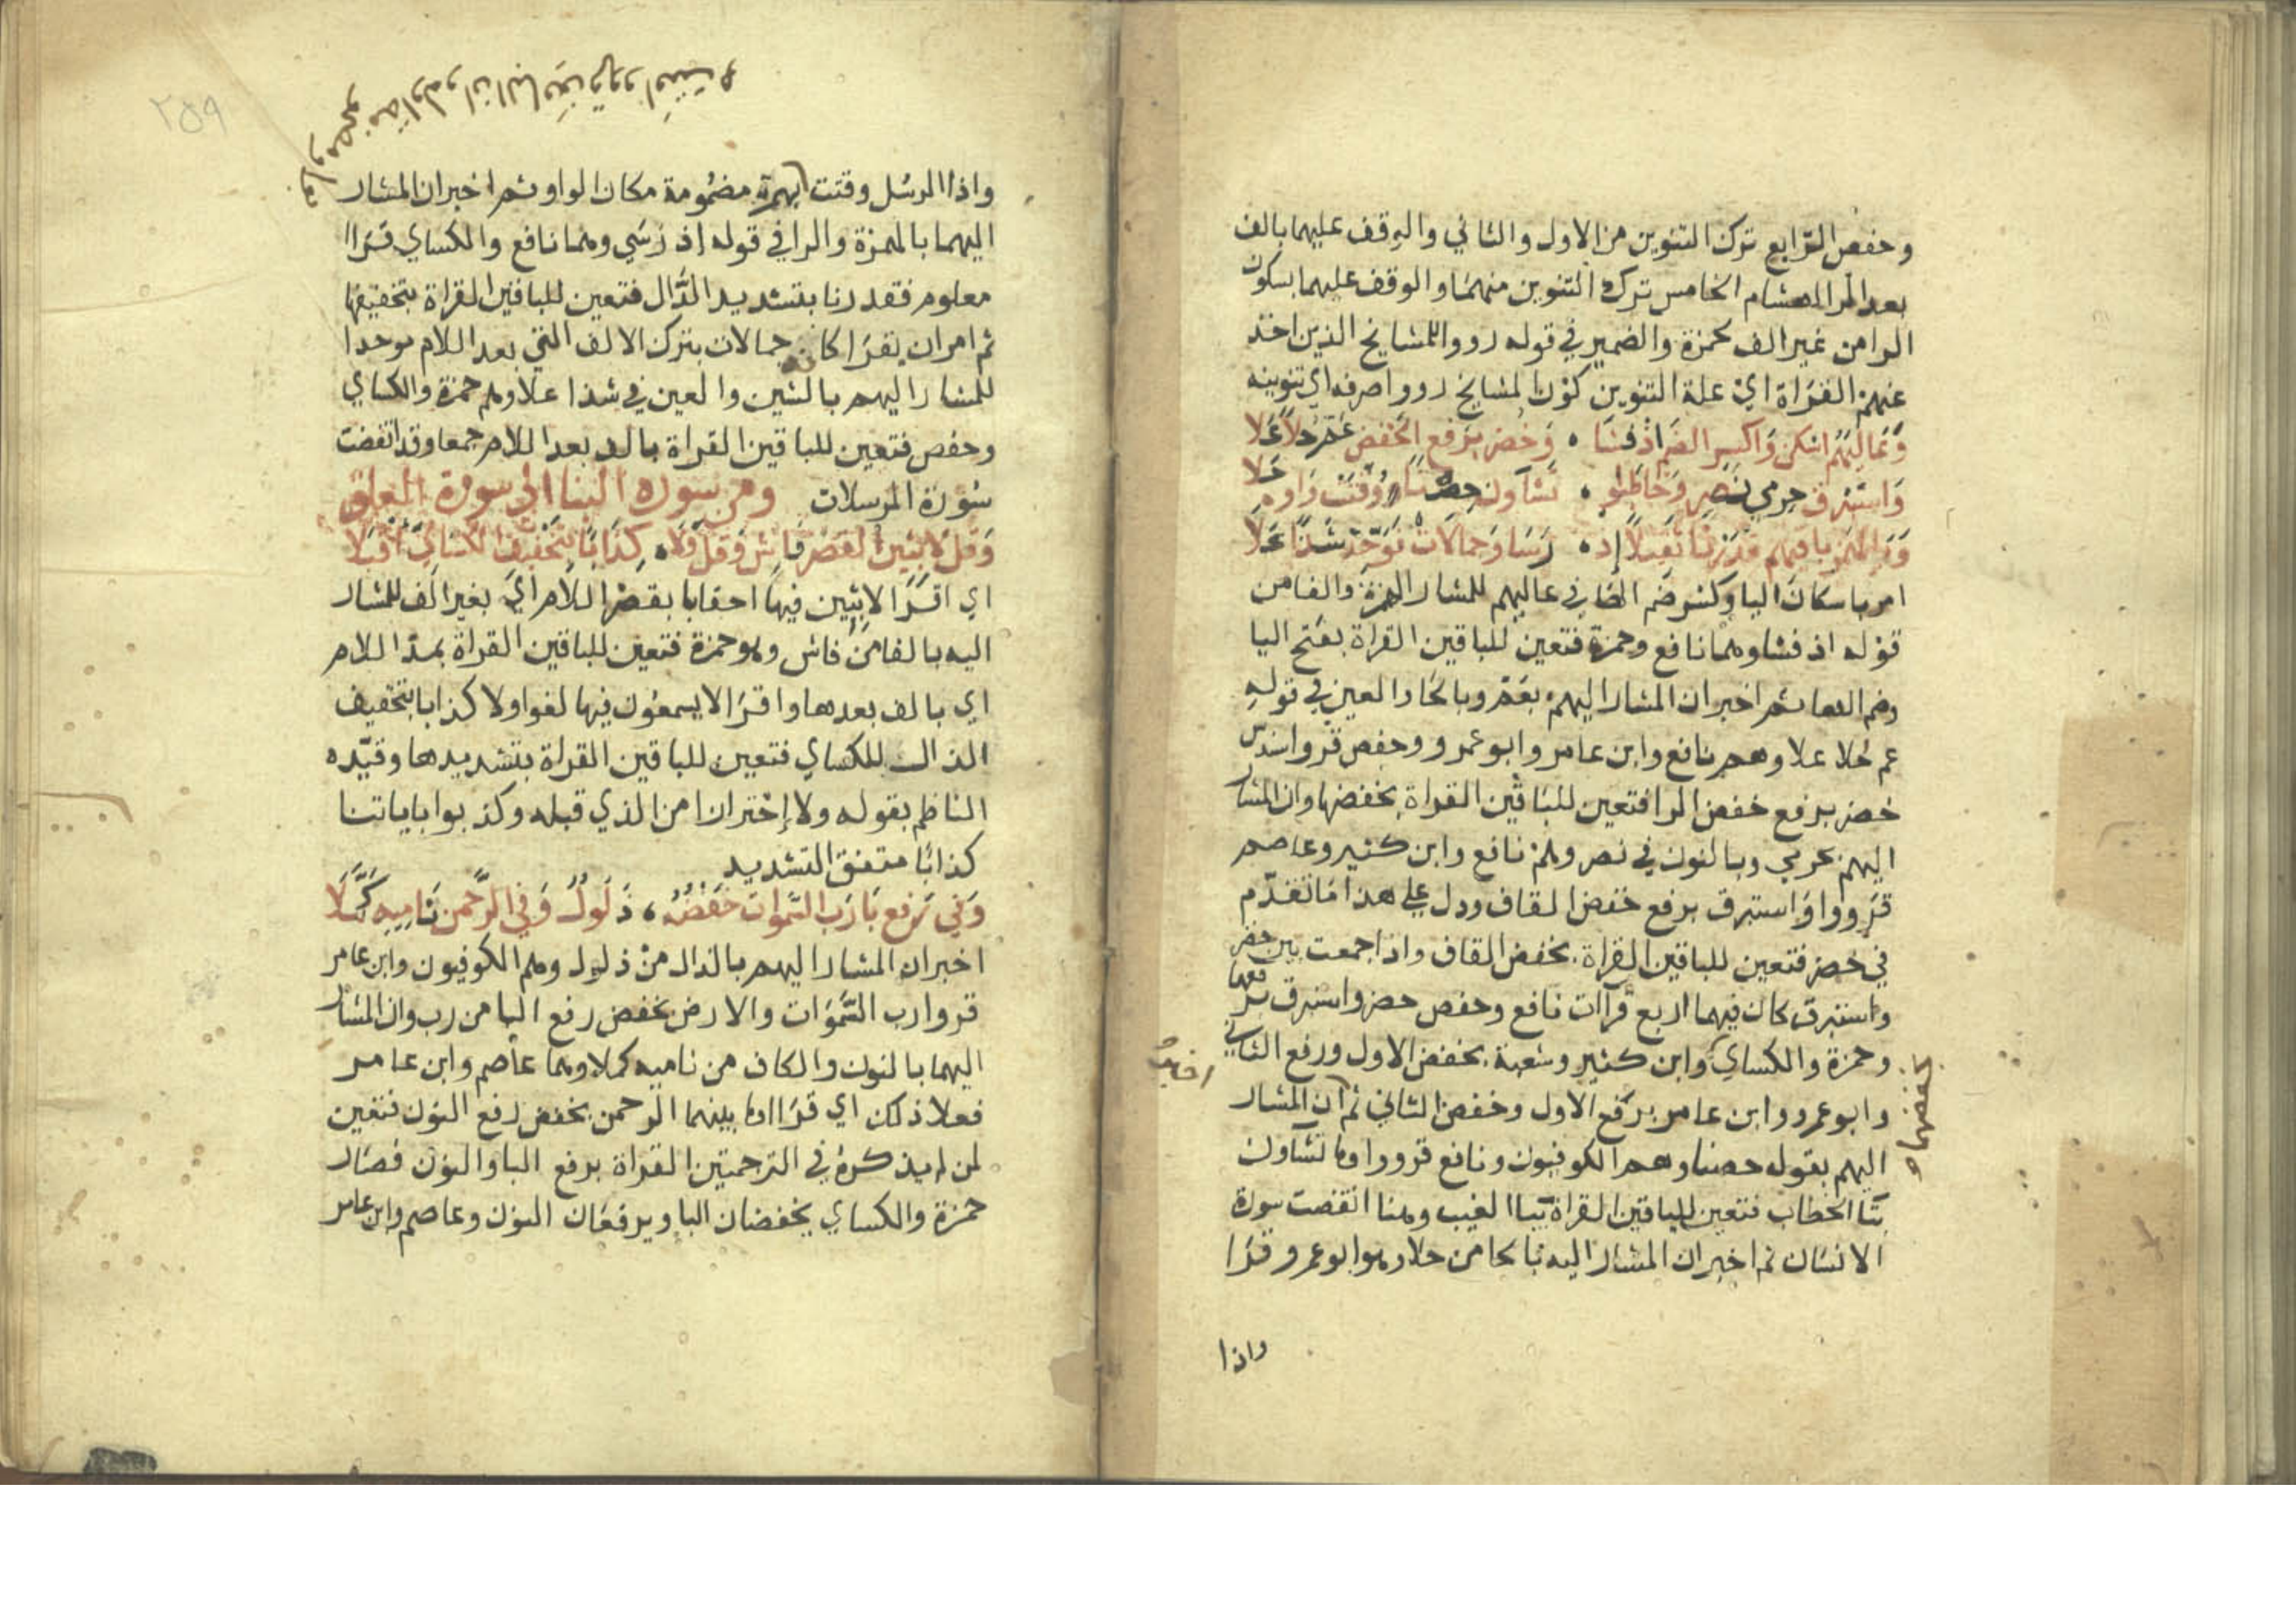 وحفص الرابع ترك التنوين من الاول والثاني والوقف عليهما بالف
بعد الرا لهشام الخامس ترك التنوين منهما والوقف عليهما بسكون
الرا من غير الف لحمزة والضمير في قوله رووا للمشايخ الذين اخذ
عنهم القراة اي علة التنوين كون المشايخ رووا صرفه اي تنوينه
وَعَالِيَهُم اسكن وَاكسر الضم اذ فشا ، وَخُضر برفع الخفض عَمَّ حُلاً عَلا
وَاستبرق حرمي نصر وَخاطبوا ، تشاون حصن وُقتت وَاوه حَلا
وَبالهمز باقيهم قدرنا ثقيلاً اذ ، رَسَا وَجمالات فوَحّد شذًا عَلاَ
امر باسكان اليا وكسر ضم الها في عاليهم للمشار اليهما بالهمزة والفا من
قوله اذ فشا وهما نافع وحمزة فتعين للباقين القراة بفتح اليا
وضم الها ثم اخبر ان المشار اليهم بعم وبالحا والعين في قوله
عم حلا علا وهم نافع وابن عامر وابو عمرو وحفص قروا سندس
خضر برفع خفض الرا فتعين للباقين القراة بخفضها وان المشار
اليهم بحرمي وبالنون في نصر وهم نافع وابن كثير وعاصم
قرووا وَاستبرق برفع خفض القاف ودل على هذا ما تقدّم
في خضر فتعين للباقين القراة بخفض القاف واذا جمعت بين خضر
واستبرق كان فيهما اربع قراآت نافع وحفص خضر واستبرق برفعهما
وحمزة والكساي وابن كثير وشعبة بخفض الاول ورفع الثاني
بخفضهما و
وابو عمرو وابن عامر برفع الاول وخفض الثاني ثم ان المشار
اخبر
اليهم بقوله حصنا وهم الكوفيون ونافع قروا وما تشاون
بتا الخطاب فتعين للباقين القراة بيا الغيب وهنا انقضت سورة
الانسان ثم اخبر ان المشار اليه بالحا من حلا وهو ابو عمرو قرا
واذا
٢٥٩
واذا الرسل وقتت بهمزة مضمومة مكان الواو ثم اخبر ان المشار
اليهما بالهمزة والرا في قوله اذ رسي وهما نافع والكساي قراا
معلوم فقدرنا بتشديد الدال فتعين للباقين القراة بتخفيفها
ثم امر ان يقرا كانه جمالات بترك الالف التي بعد اللام موحدا
للمشار اليهم بالشين والعين في شذا علا وهم حمزة والكساي
وحفص فتعين للباقين القراة بالف بعد اللام جمعا وقد انقضت
سورة المرسلات ومن سورة النبا الى سورة العلق
وَقل لابثين القصر فاش وَقل وَلا ، كِذَابًا بتخفيف الكساي اقبلا
اي اقرا لابثين فيها احقابا بقصر اللام اي بغير الف للمشار
اليه بالفا من فاش وهو حمزة فتعين للباقين القراة بمد اللام
اي بالف بعدها واقرا لا يسمعون فيها لغوا ولا كذابا بتخفيف
الذال للكساي فتعين للباقين القراة بتشديدها وقيّده
الناظم بقوله ولا إحترازا من الذي قبله وكذبوا باياتنا
كذابًا متفق التشديد
وَفي رفع بَا رَب السموات خفضُهُ ، ذَلُولٌ وَفي الرحمن نَاميه كَمَّلَا
اخبر ان المشار اليهم بالذال من ذلول وهم الكوفيون وابن عامر
قروا رب السَّمَوَات والارض بخفض رفع البا من رب وان المشار
اليهما بالنون والكاف من ناميه كملا وهما عاصم وابن عامر
فعلا ذلك اي قراا وما بينهما الرحمن بخفض رفع النون فتعين
لمن لم يذكره في الترجمتين القراة برفع البا والنون فصار
حمزة والكساي يخفضان البا ويرفعان النون وعاصم وابن عامر